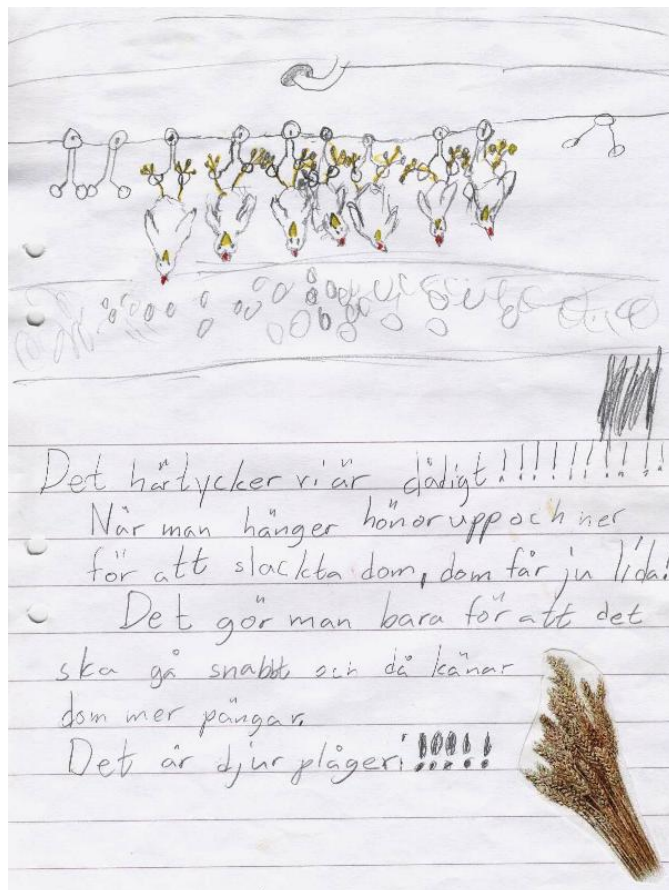 Det här tycker vi är dåligt!!!!!!!!!
När man hänger hönor upp och ner
för att slackta dom, dom får ju lida!
Det gör man bara för att det
ska gå snabbt och då känar
dom mer pängar.
Det är djurplågeri!!!!!